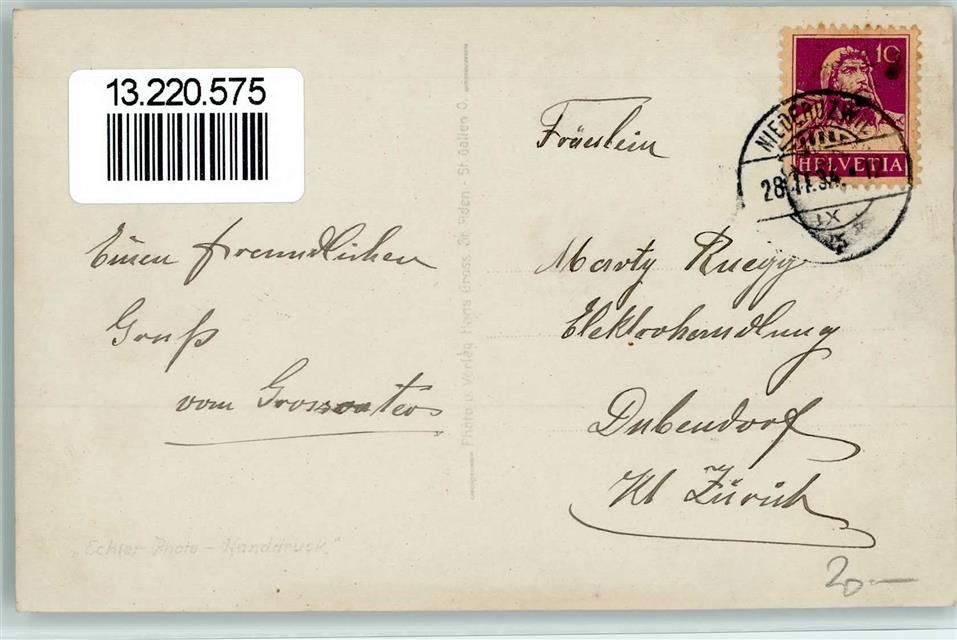 13.220.575
10
HELVETIA
NIEDERUZWIL
28.11.34. - 12
IX
Fräulein
Einen freundlichen
Gruß
vom Grossvater
Photo u. Verlag Hans Gross, St. Fiden - St. Gallen O.
Marty Ruegg
Elektrohandlung
Dubendorf
Kt Zürich
„Echter Photo - Handdruck."
20.—